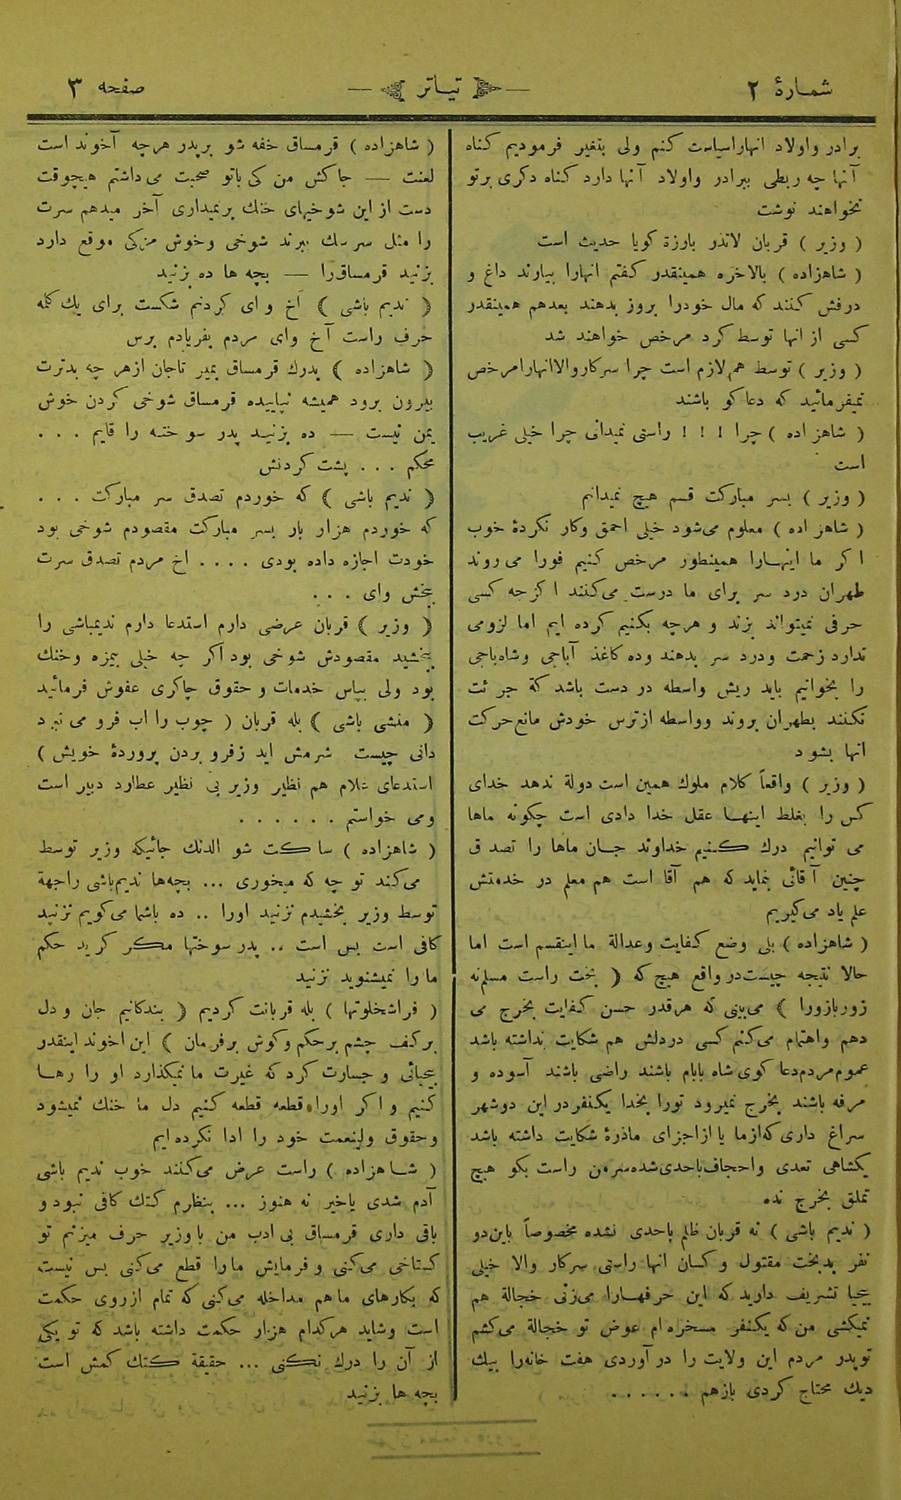 شمارهٔ ۲
تیاتر
صفحه ۳
برادر واولاد انهاراسیاست کنم ولی بتغیر فرمودیم کناه
آنها چه ربطی ببرادر واولاد آنها دارد کناه دکری برتو
نخواهند نوشت
( وزیر ) قربان لاتذر بازرة کویا حدیث است
( شاهزاده ) بالاخره همینقدر کفتم انهارا بیارند داغ و
درفش کنند که مال خودرا بروز بدهند بعدهم همینقدر
کسی از انها توسط کرد مرخص خواهند شد
( وزیر ) توسط هم لازم است چرا سرکاروالاانهارامرخص
نمیفرمائید که دعاکو باشند
( شاهزاده ) چرا ! ! ! راستی نمیدانی چرا خیلی غریب
است
( وزیر ) بسر مبارکت قسم هیچ نمیدانم
( شاهزاده ) معلوم می‌شود خیلی احمق وکار نکردهٔ خوب
اکر ما اینهـارا همینطور مرخص کنیم فورا می روند
طهران درد سر برای ما درست می‌کنند اکرچه کسی
حرفی نمیتواند بزند و هرچه بکنیم کرده ایم اما لزومی
ندارد زحمت ودرد سر بدهند وده کاغذ آباجی وشاه‌باجی
را بخوانیم باید ریش واسطه در دست باشد که جرئت
نکنند بطهران بروند وواسطه ازترس خودش مانع‌حرکت
انها بشود
( وزیر ) واقعاً کلام ملوك همین است دولة ندهد خدای
کس را بغلط اینهـا عقل خدا دادی است چکونه ماها
می توانیم درك کنیم خداوند جـان ماها را تصدق
چنین آقائی نماید که هم آقا است هم معلم در خدمتش
علم یاد می‌کیریم
( شاهزاده ) بلی وضع کفایت وعدالة ما اینقسم است اما
حالا نتیجه چیست‌درواقع هیچ که ( بخت راست مسلم‌نه
زوربازورا ) می‌بینی که هرقدر حسن کفایت بخرج می
دهم واهتمام می‌کنم کسی دردلش هم شکایت نداشته باشد
عموم‌مردم‌دعا کوی شاه بابام باشند راضی باشند آسوده و
مرفه باشند بخرج نمیرود تورا بخدا یکنفردر این دوشهر
سراغ داری که‌ازما یا ازاجزای ماذرهٔ شکایت داشته باشد
یکشاهی تعدی واحجاف‌باحدی‌شده راست بکو هیچ
تملق بخرج نده
( ندیم باشی ) نه قربان ظلم باحدی نشده مخصوصاً باین‌دو
نفر بدبخت مقتول وکسان انها راستی سرکار والا خیلی
بیحیا تشریف دارید که این حرفهـارا می‌زنی خجالة هم
نمیکشی من که یکنفر مسخره ام عوض تو خجالة می‌کشم
توپدر مردم این ولایت را درآوردی هفت خانه‌را بیك
دیك محتاج کردی بازهم . . . . . .
( شاهزاده ) قرمساق خفه شو برپدر هرچه آخوند است
لعنت — جاکش من کی باتو صحبت می داشتم هیچوقت
دست از این شوخیهای خنك برنمیداری آخر میدهم سرت
را مثل سر سك ببرند شوخی وخوش مزکی موقع دارد
بزنید قرمساق‌را — بچه ها ده بزنید
( ندیم باشی ) آخ وای کردنم شکست برای یك کله
حرف راست آخ وای مردم بفریادم برس
( شاهزاده ) پدرك قرمساق بمیر تاجان ازهر چه بدترت
بیرون برود همیشه نپاییده قرمساق شوخی کردن خوش
یمن نیست — ده بزنید پدر سوخته را قایم . . .
محکم . . . پشت کردنش
( ندیم باشی ) که خوردم تصدق سر مبارکت . . .
که خوردم هزار بار بسر مبارکت مقصودم شوخی بود
خودت اجازه داده بودی . . . . اخ مردم تصدق سرت
بخش وای . . .
( وزیر ) قربان عرضی دارم استدعا دارم ندیمباشی را
بخشید مقصودش شوخی بود آکر چه خیلی بیمزه وخنك
بود ولی بپاس خدمات و حقوق چاکری عفوش فرمائید
( منشی باشی ) بله قربان ( چوب را اب فرو می نبرد
دانی چیست شرمش اید زفرو بردن پروردهٔ خویش )
استدعای غلام هم نظیر وزیر بی نظیر عطارد دبیر است
ومی خواستم . . . . . .
( شاهزاده ) ساکت شو الدنك جائیکه وزیر توسط
می‌کند تو چه که میخوری ... بچه‌ها ندیم‌باشی راجهة
توسط وزیر بخشیدم نزنید اورا .. ده باشما می‌کویم نزنید
کافی است بس است .. پدر سوختها مکر کرید حکم
ما را نمیشنوید نزنید
( فراشخلوتها ) بله قربانت کردیم ( بندکانیم جان و دل
برکف چشم برحکم وکوش برفرمان ) این اخوند اینقدر
بیحیائی و جسارت کرد که غیرت ما نمیکذارد او را رهـا
کنیم واکر اورا قطعه قطعه کنیم دل ما خنك نمیشود
وحقوق ولینعمت خود را ادا نکرده ایم
( شـاهزاده ) راست عرض می‌کنند خوب ندیم باشی
آدم شدی یاخیر نه هنوز ... بنظرم کتك کافی نبود و
باقی داری قرمساق بی ادب من با وزیر حرف میزنم تو
کستاخی می‌کنی و فرمایش ما را قطع می‌کنی بس نیست
که بکارهای ما هم مداخله می‌کنی که تمام ازروی حکمت
است وشاید هرکدام هزار حکمت داشته باشد که تو یکی
از آن را درك نکنی ... حقیقة کتك کمش است
بچه ها بزنید